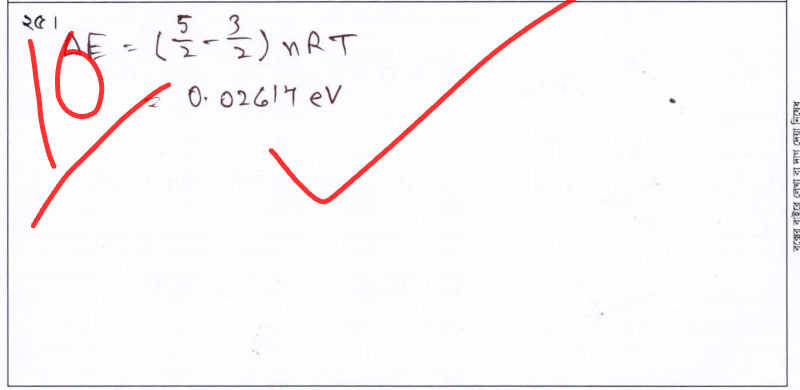 ২৫।
ΔE = (5/2 - 3/2) nRT
= 0.02617 eV
10
বক্সের বাইরে লেখা বা দাগ দেয়া নিষেধ